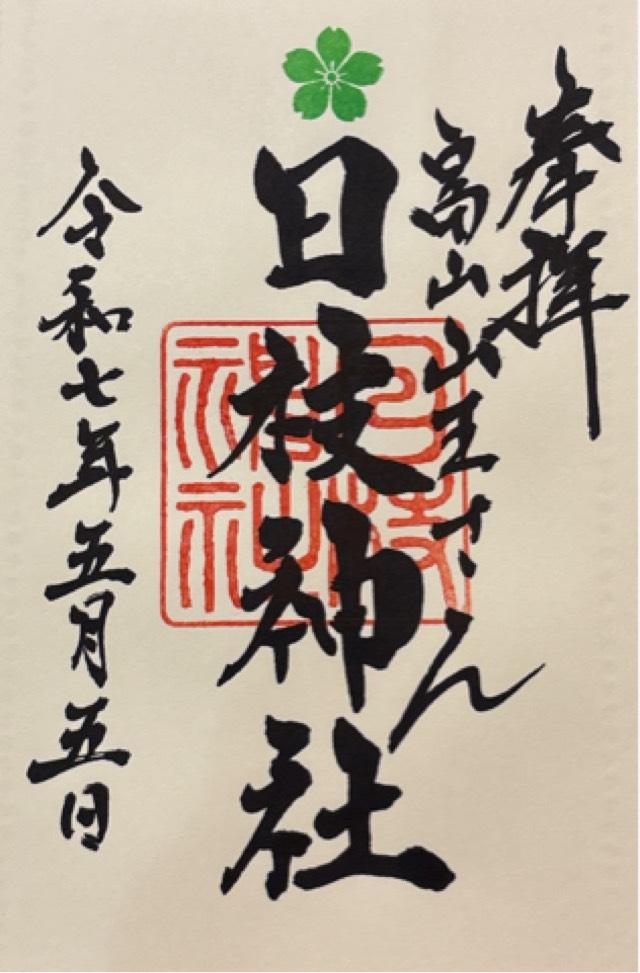 奉拝
高山山王さん
日枝神社
日枝神社
令和七年五月五日